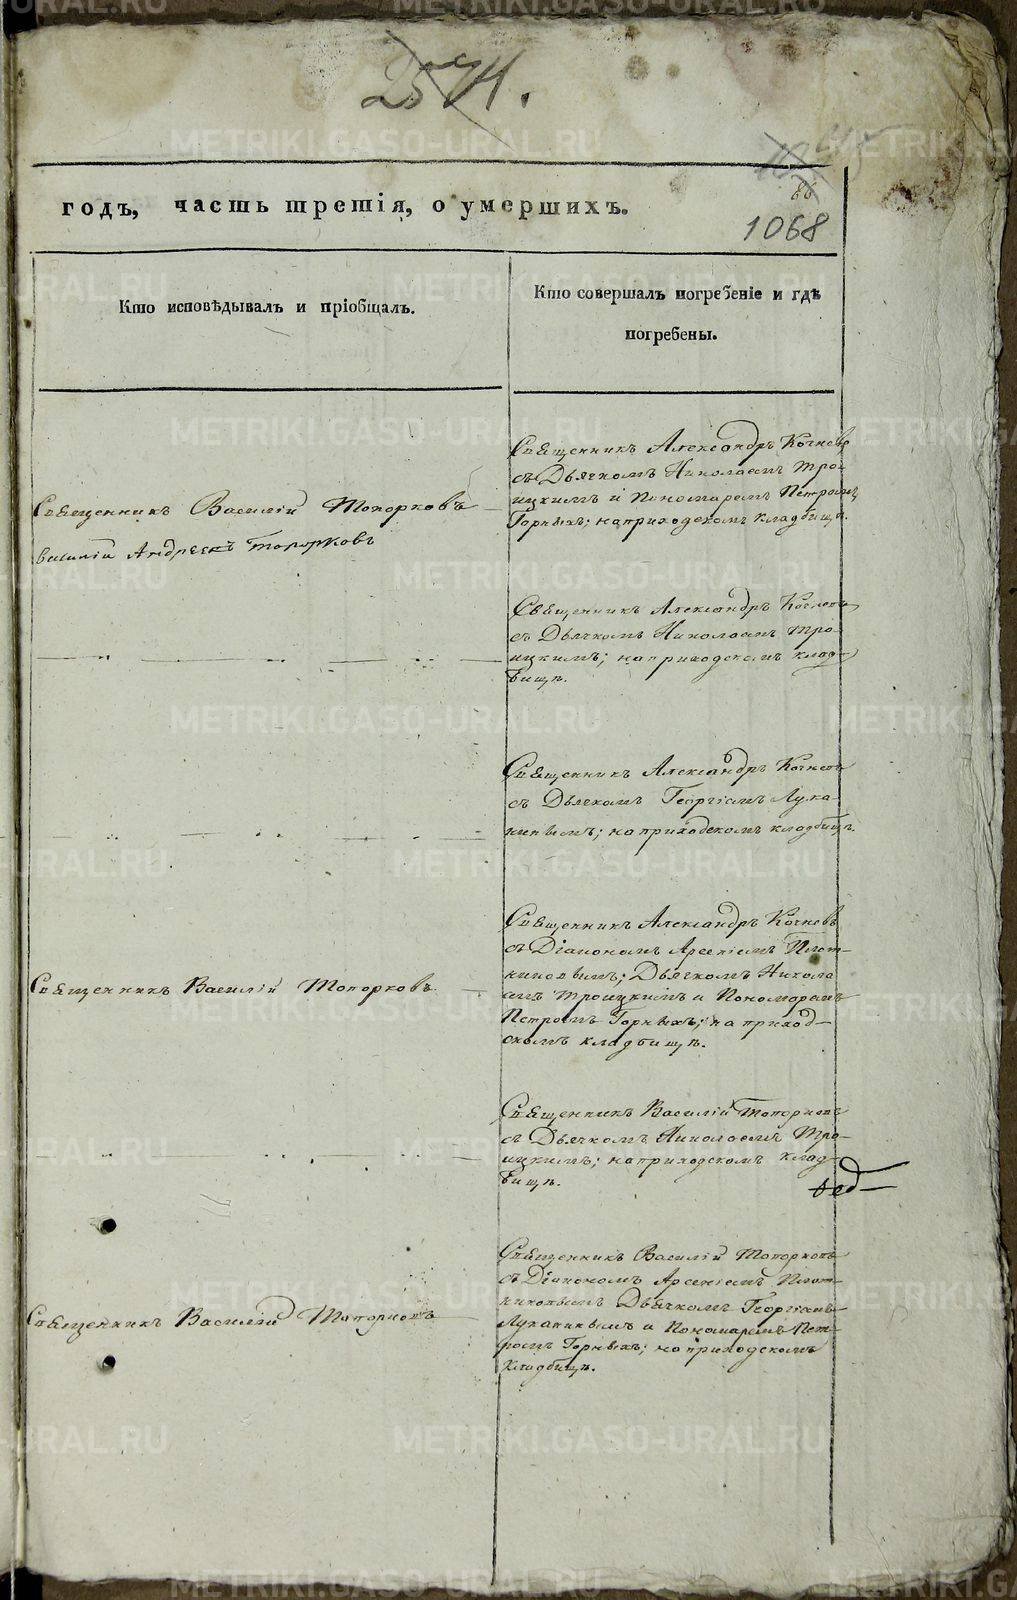 1068
годъ, часть третія, о умершихъ.
Кто исповѣдывалъ и пріобщалъ.
Кто совершалъ погребеніе и гдѣ
погребены.
Священникъ Василій Топорковъ
василій Андреевъ Топорковъ
Священникъ Александръ Кочневъ
съ Дьячкомъ Николаемъ Тро-
ицкимъ и Пономаремъ Петромъ
Горныхъ; на приходскомъ кладбищѣ.
Священникъ Александръ Кочневъ
съ Дьячкомъ Николаемъ Тро-
ицкимъ; на приходскомъ клад-
бищѣ.
Священникъ Александръ Кочневъ
съ Дьячкомъ Георгіемъ Лука-
нинымъ; на приходскомъ кладбищѣ.
Священникъ Василій Топорковъ
Священникъ Александръ Кочневъ
съ Діакономъ Арсеніемъ Плот-
никовымъ; Дьячкомъ Никола
емъ Троицкимъ и Пономаремъ
Петромъ Горныхъ; на приход-
скомъ кладбищѣ.
Священникъ Василій Топорковъ
съ Дьячкомъ Николаемъ Тро-
ицкимъ; на приходскомъ клад-
бищѣ.
Священникъ Василій Топорковъ
Священникъ Василій Топорковъ
съ Діакономъ Арсеніемъ Плот-
никовымъ Дьячкомъ Георгіемъ
Луканинымъ и Пономаремъ Пет-
ромъ Горныхъ; на приходскомъ
кладбищѣ.
METRIKI.GASO-URAL.RU